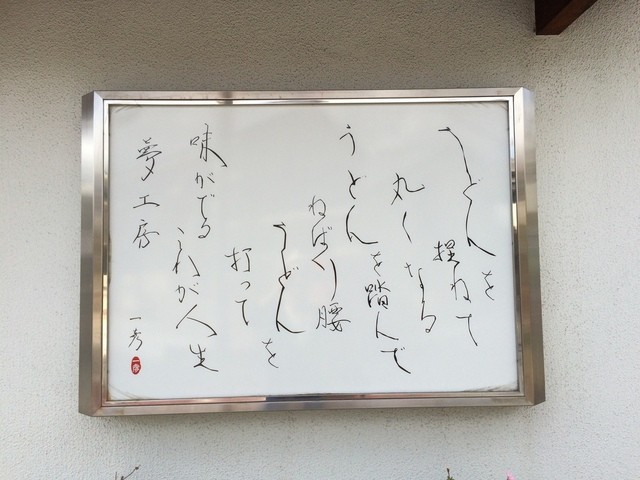 うどんを
捏ねて
丸くなる
うどんを踏んで
ねばくり腰
うどんを
打って
味がでる
これが人生
夢工房
一秀